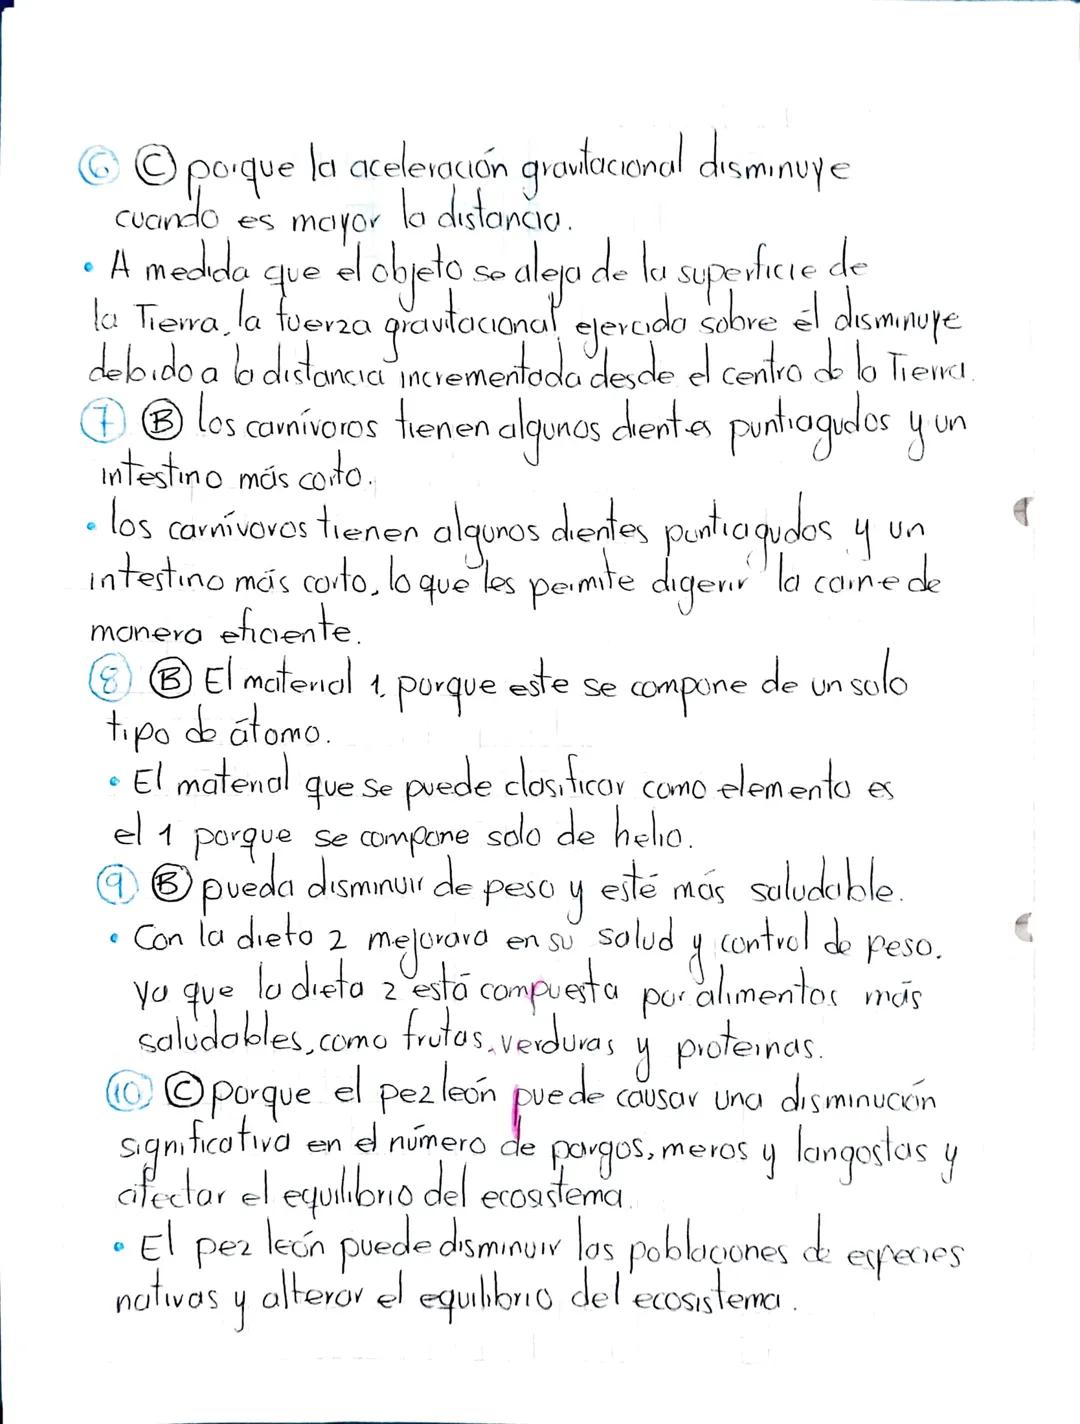 6 C porque la aceleración gravitacional disminuye
cuando es mayor la distancia.
• A medida que el objeto se aleja de la superficie de
la Tierra, la fuerza gravitacional ejercida sobre él disminuye
debido a la distancia incrementada desde el centro de la Tierra.
7 B los carnívoros tienen algunos dientes puntiagudos y un
intestino más corto.
• los carnívoros tienen algunos dientes puntiagudos y un
intestino más corto, lo que les permite digerir la carne de
manera eficiente.
8 B El material 1, porque este se compone de un solo
tipo de átomo.
• El material que se puede clasificar como elemento es
el 1 porque se compone solo de helio.
9 B pueda disminuir de peso y esté más saludable.
• Con la dieta 2 mejorara en su salud y control de peso.
Ya que la dieta 2 está compuesta por alimentos más
saludables, como frutas, verduras y proteinas.
10 C porque el pez león puede causar una disminución
significativa en el número de pargos, meros y langostas y
afectar el equilibrio del ecosistema.
• El pez león puede disminuir las poblaciones de especies
nativas y alterar el equilibrio del ecosistema.